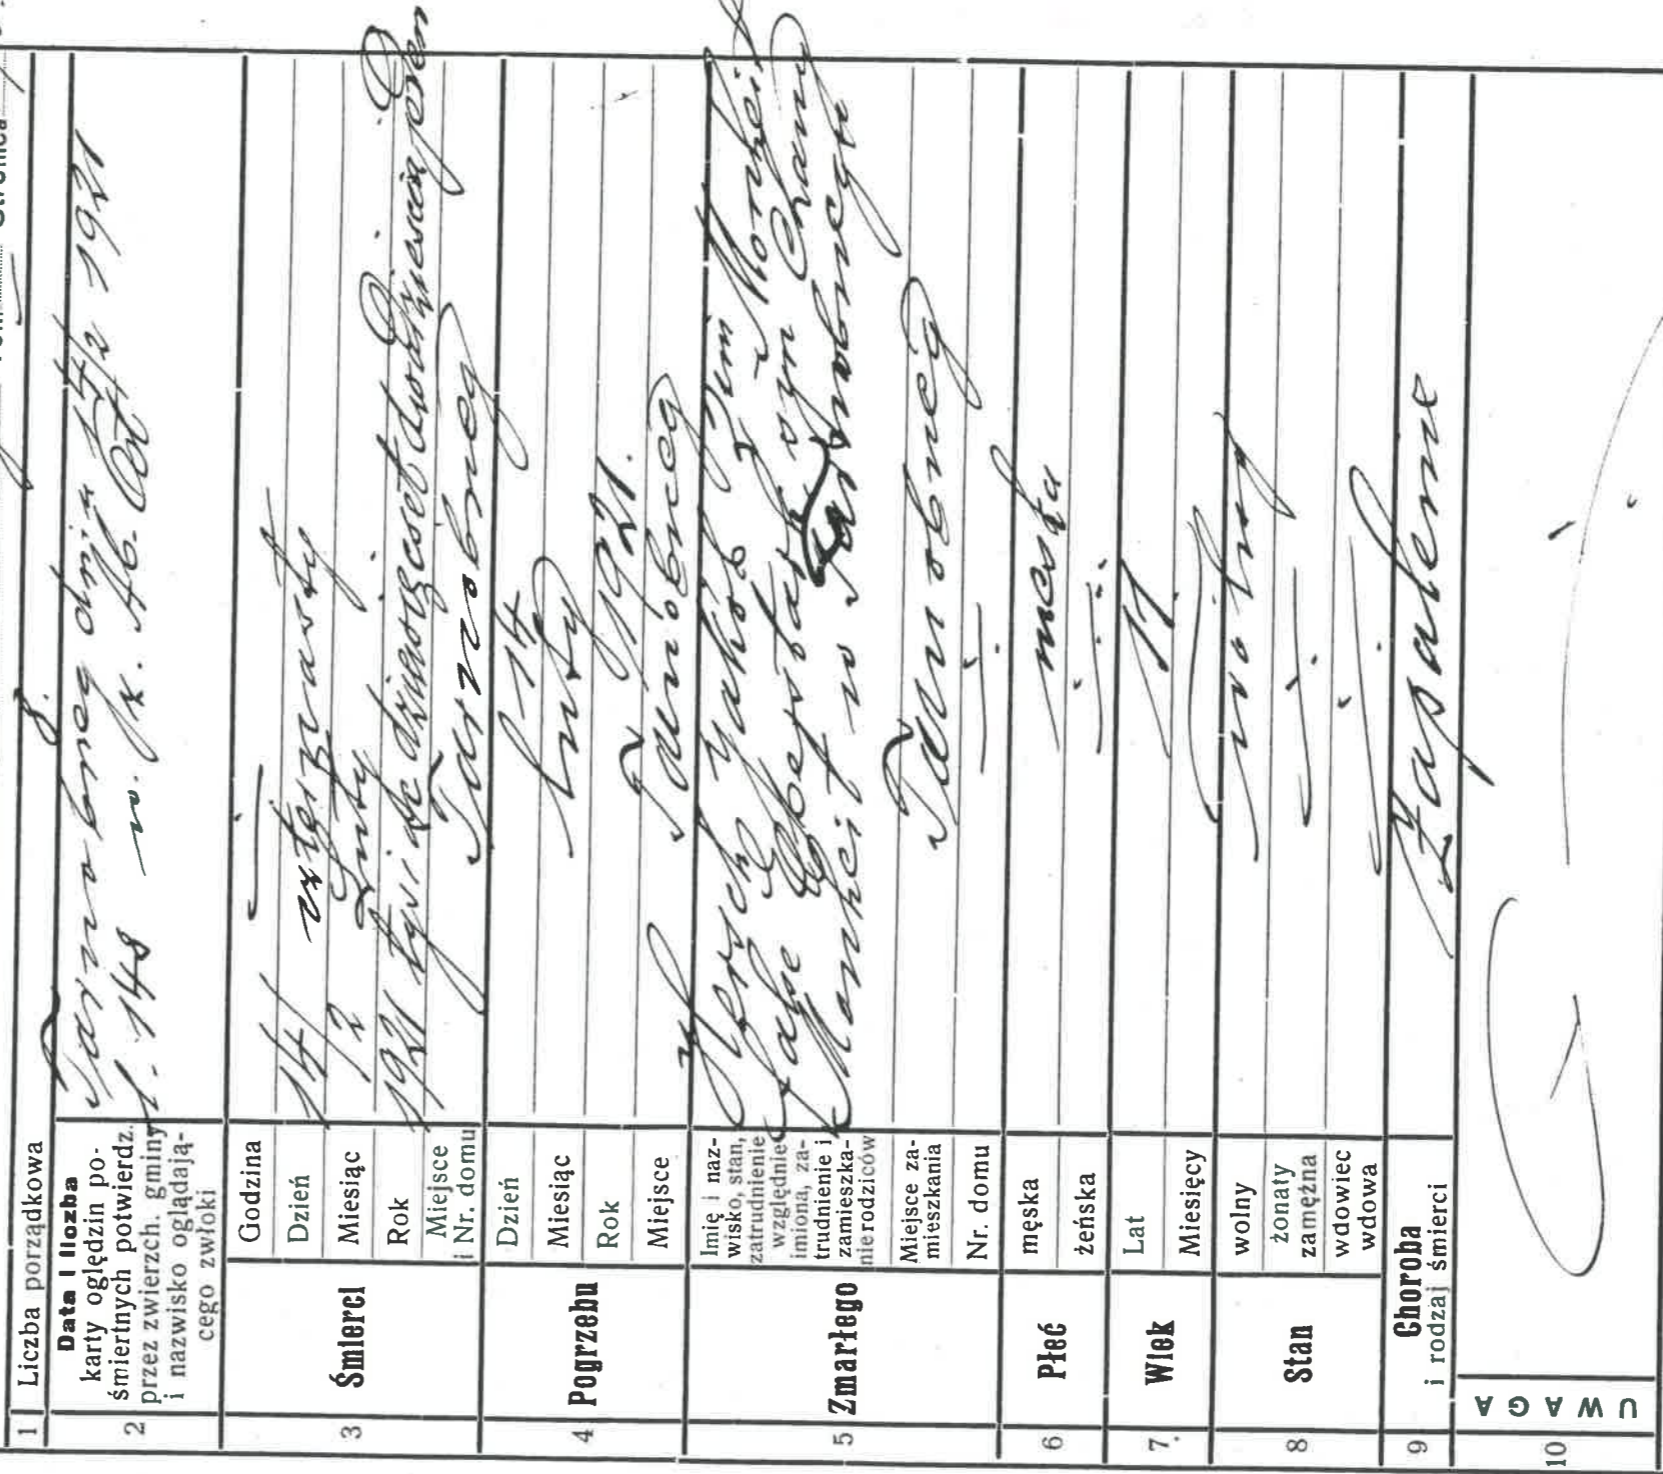 Stronica
1 Liczba porządkowa
8.
2 Data i liczba
karty oględzin po-
śmiertnych potwierdz.
przez zwierzch. gminy
i nazwisko oglądają-
cego zwłoki
Tarnobrzeg dnia 14/2 1921
l. 148
3 Śmierci
Godzina
—
Dzień
14 czternasty
Miesiąc
/2 Luty
Rok
1921 tysiąc dziewięćset dwadzieścia jeden
Miejsce
i Nr. domu
Tarnobrzeg
4 Pogrzebu
Dzień
14
Miesiąc
luty
Rok
1921.
Miejsce
Tarnobrzeg
5 Zmarłego
Imię i naz-
wisko, stan,
zatrudnienie
względnie
imiona, za-
trudnienie i
zamieszka-
nie rodziców
Hersch Jakób
syn Chany
w Tarnobrzegu
Miejsce za-
mieszkania
Tarnobrzeg
Nr. domu
—
6 Płeć
męska
męska
żeńska
—
7. Wiek
Lat
17
Miesięcy
8 Stan
wolny
wolny
żonaty
zamężna
—
wdowiec
wdowa
—
9 Choroba
i rodzaj śmierci
Zapalenie
10 UWAGA